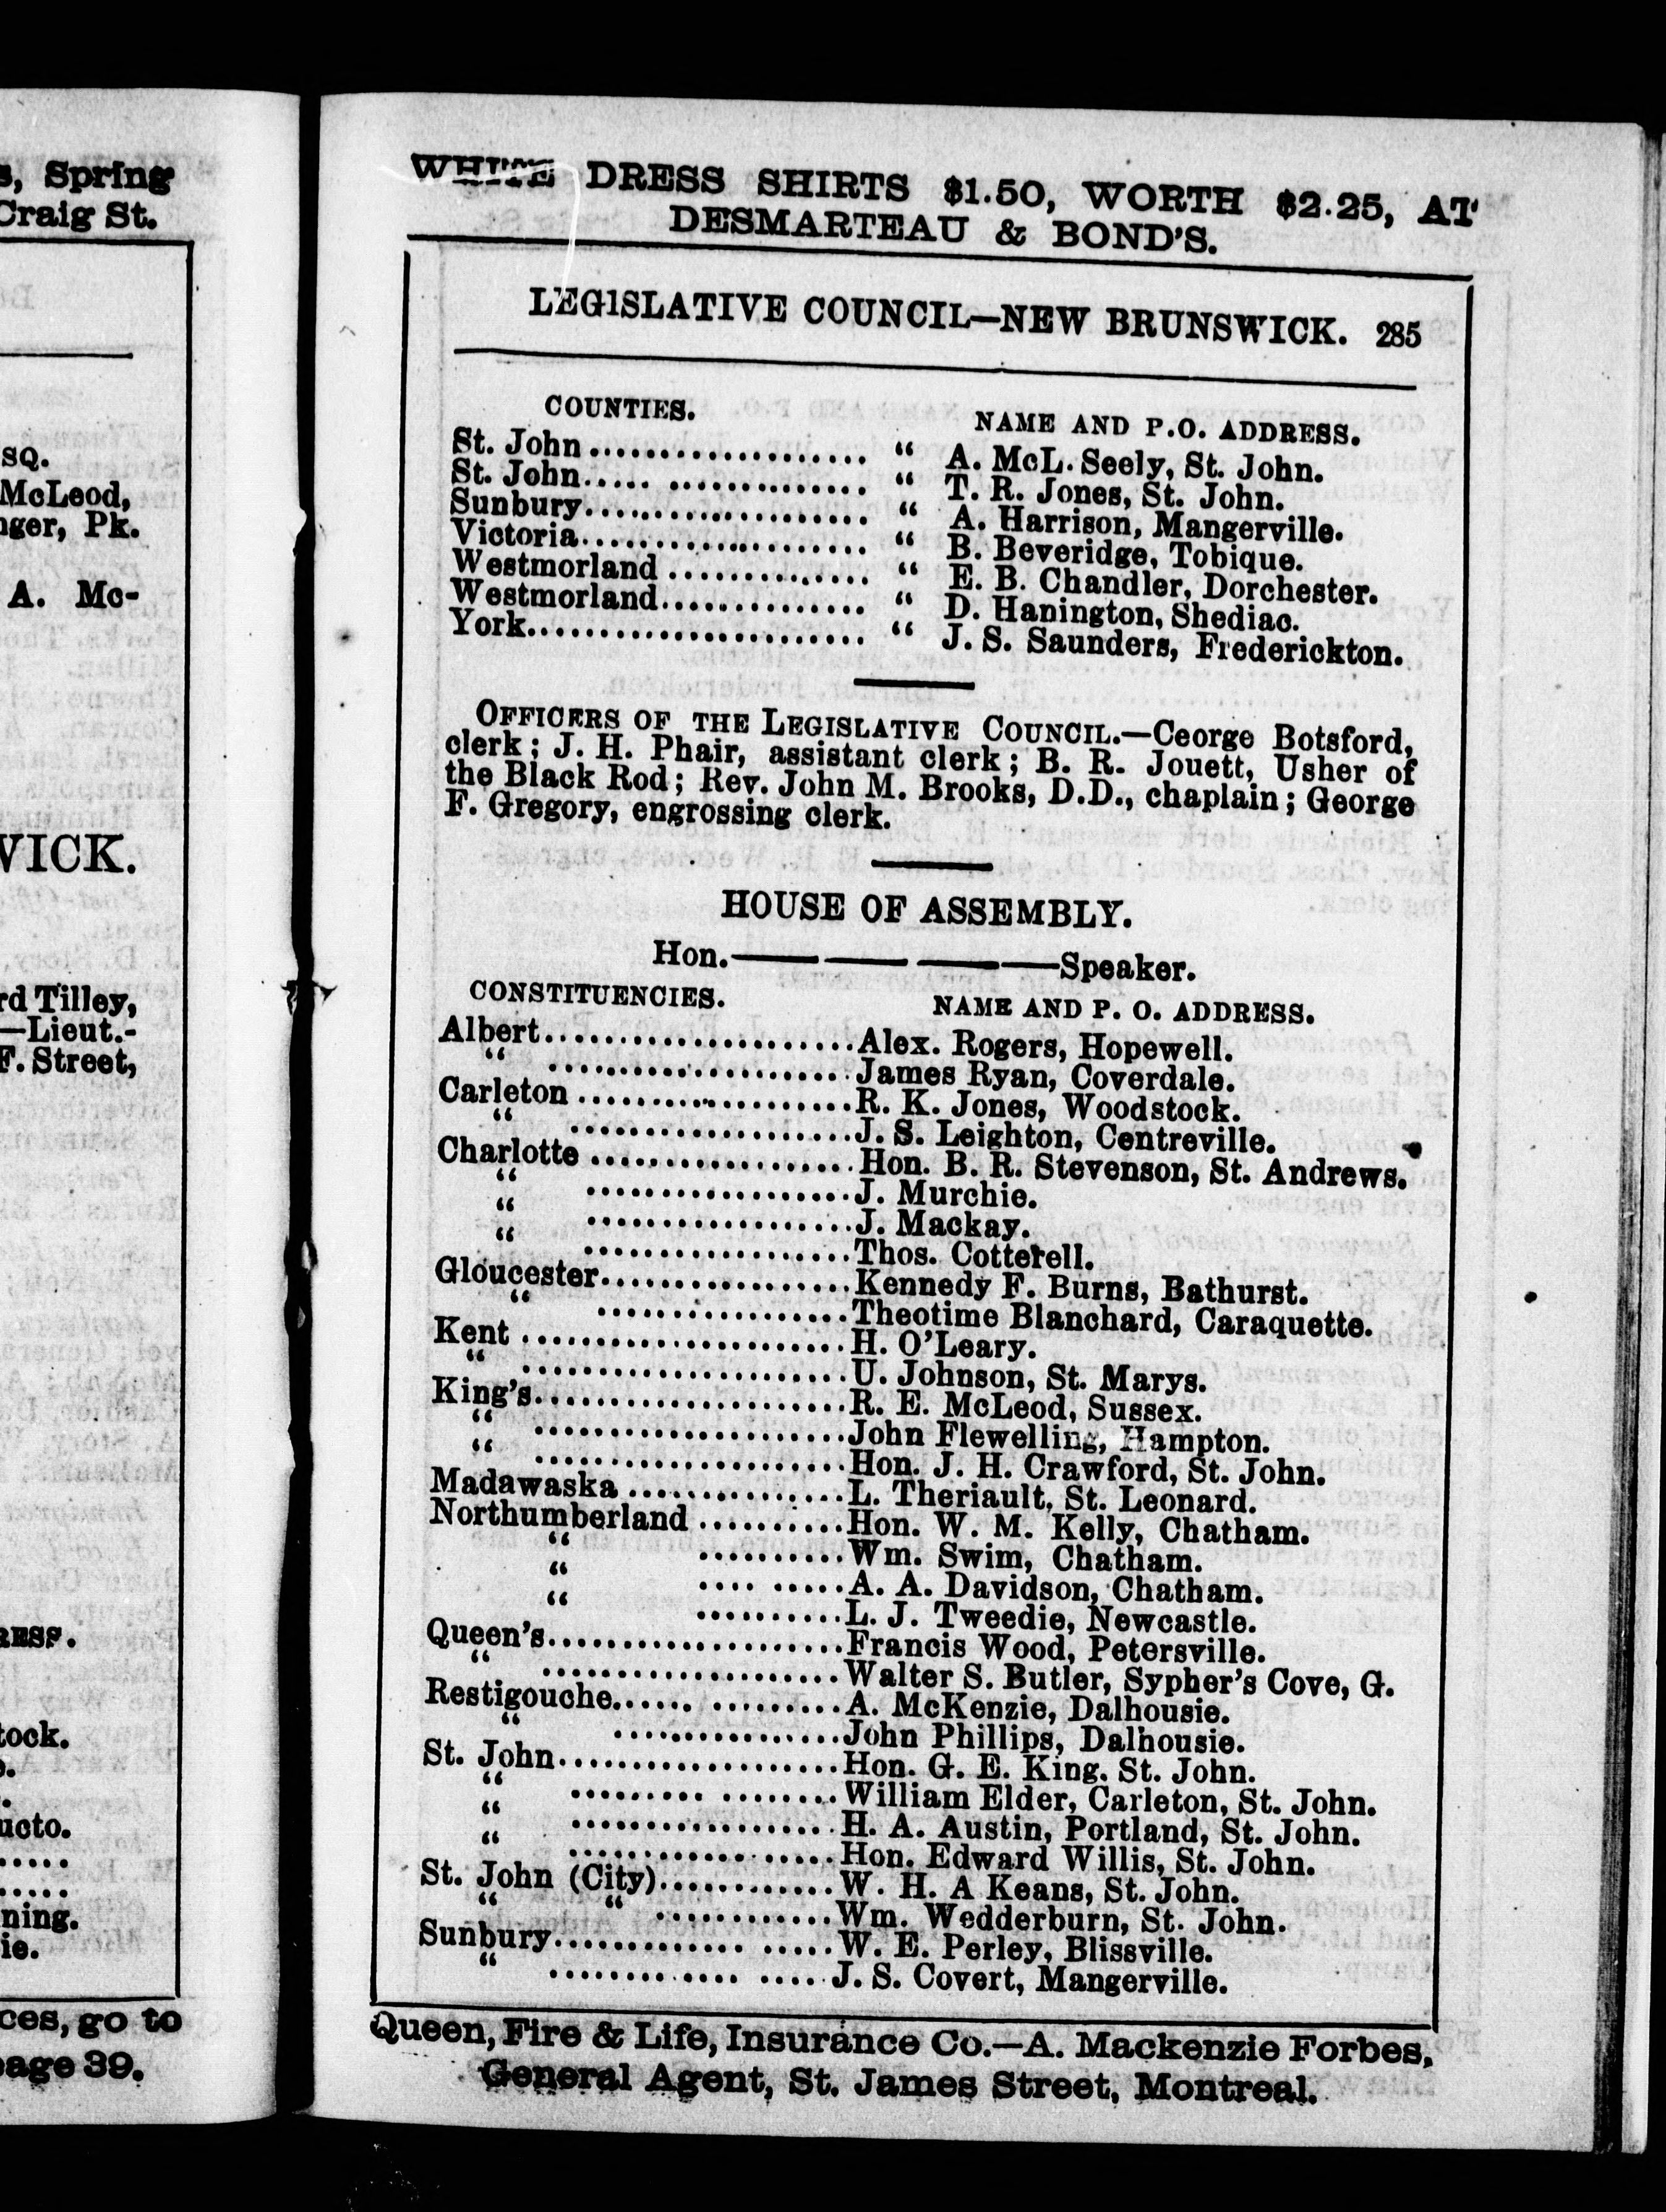 s, Spring
Craig St.
SQ.
McLeod,
nger, Pk.
A. Mc-
WICK.
rd Tilley,
—Lieut.-
F. Street,
RESS.
tock.
ucto.
ning.
ie.
ces, go to
page 39.
WHITE DRESS SHIRTS $1.50, WORTH $2.25, AT
DESMARTEAU & BOND'S.
LEG1SLATIVE COUNCIL—NEW BRUNSWICK. 285
COUNTIES. NAME AND P.O. ADDRESS.
St. John.................... “ A. McL. Seely, St. John.
St. John..... .............. “ T. R. Jones, St. John.
Sunbury.................... “ A. Harrison, Mangerville.
Victoria.................... “ B. Beveridge, Tobique.
Westmorland .............. “ E. B. Chandler, Dorchester.
Westmorland.............. “ D. Hanington, Shediac.
York........................ “ J. S. Saunders, Frederickton.
OFFICERS OF THE LEGISLATIVE COUNCIL.—Ceorge Botsford,
clerk; J. H. Phair, assistant clerk; B. R. Jouett, Usher of
the Black Rod; Rev. John M. Brooks, D.D., chaplain; George
F. Gregory, engrossing clerk.
HOUSE OF ASSEMBLY.
Hon.—— —— ————Speaker.
CONSTITUENCIES. NAME AND P. O. ADDRESS.
Albert......................Alex. Rogers, Hopewell.
“ ......................James Ryan, Coverdale.
Carleton ...................R. K. Jones, Woodstock.
“ ....................J. S. Leighton, Centreville.
Charlotte ...................Hon. B. R. Stevenson, St. Andrews.
“ ...................J. Murchie.
“ ...................J. Mackay.
“ ...................Thos. Cotterell.
Gloucester..................Kennedy F. Burns, Bathurst.
“ ..................Theotime Blanchard, Caraquette.
Kent .......................H. O'Leary.
“ .......................U. Johnson, St. Marys.
King's......................R. E. McLeod, Sussex.
“ ......................John Flewelling, Hampton.
“ ......................Hon. J. H. Crawford, St. John.
Madawaska ...............L. Theriault, St. Leonard.
Northumberland ..........Hon. W. M. Kelly, Chatham.
“ ..........Wm. Swim, Chatham.
“ .... .....A. A. Davidson, Chatham.
“ ..........L. J. Tweedie, Newcastle.
Queen's.....................Francis Wood, Petersville.
“ .....................Walter S. Butler, Sypher's Cove, G.
Restigouche...... .........A. McKenzie, Dalhousie.
“ ................John Phillips, Dalhousie.
St. John....................Hon. G. E. King. St. John.
“ ......... ........William Elder, Carleton, St. John.
“ ...................H. A. Austin, Portland, St. John.
“ ...................Hon. Edward Willis, St. John.
St. John (City)............W. H. A Keans, St. John.
“ “ ............Wm. Wedderburn, St. John.
Sunbury............. .....W. E. Perley, Blissville.
“ ............. .....J. S. Covert, Mangerville.
Queen, Fire & Life, Insurance Co.—A. Mackenzie Forbes,
General Agent, St. James Street, Montreal.